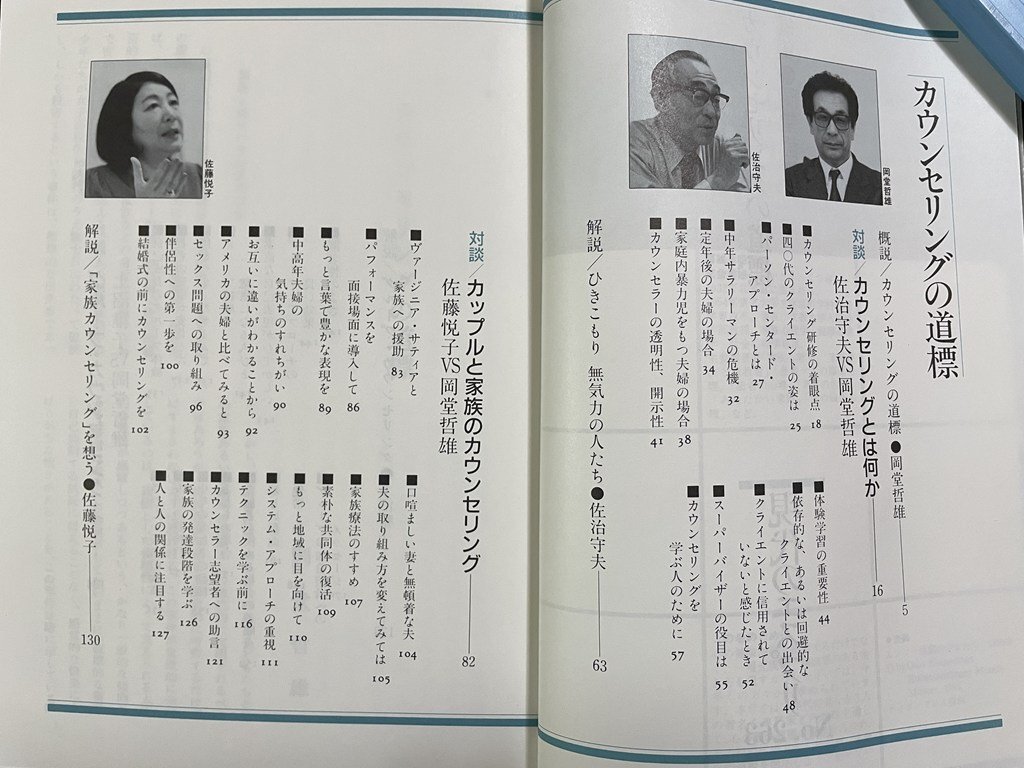 カウンセリングの道標
岡堂哲雄
佐治守夫
概説／カウンセリングの道標●岡堂哲雄 5
対談／カウンセリングとは何か 16
佐治守夫VS岡堂哲雄
■カウンセリング研修の着眼点 18
■四〇代のクライエントの姿は 25
■パーソン・センタード・
アプローチとは 27
■中年サラリーマンの危機 32
■定年後の夫婦の場合 34
■家庭内暴力児をもつ夫婦の場合 38
■カウンセラーの透明性、開示性 41
■体験学習の重要性 44
■依存的な、あるいは回避的な
クライエントとの出会い 48
■クライエントに信用されて
いないと感じたとき 52
■スーパーバイザーの役目は 55
■カウンセリングを
学ぶ人のために 57
解説／ひきこもり 無気力の人たち●佐治守夫 63
佐藤悦子
対談／カップルと家族のカウンセリング 82
佐藤悦子VS岡堂哲雄
■ヴァージニア・サティアと
家族への援助 83
■パフォーマンスを
面接場面に導入して 86
■もっと言葉で豊かな表現を 89
■中高年夫婦の
気持ちのすれちがい 90
■お互いに違いがわかることから 92
■アメリカの夫婦と比べてみると 93
■セックス問題への取り組み 96
■伴侶性への第一歩を 100
■結婚式の前にカウンセリングを 102
■口喧ましい妻と無頓着な夫 104
■夫の取り組み方を変えてみては 105
■家族療法のすすめ 107
■素朴な共同体の復活 109
■もっと地域に目を向けて 110
■システム・アプローチの重視 111
■テクニックを学ぶ前に 116
■カウンセラー志望者への助言 121
■家族の発達段階を学ぶ 126
■人と人の関係に注目する 127
解説／「家族カウンセリング」を想う●佐藤悦子 130